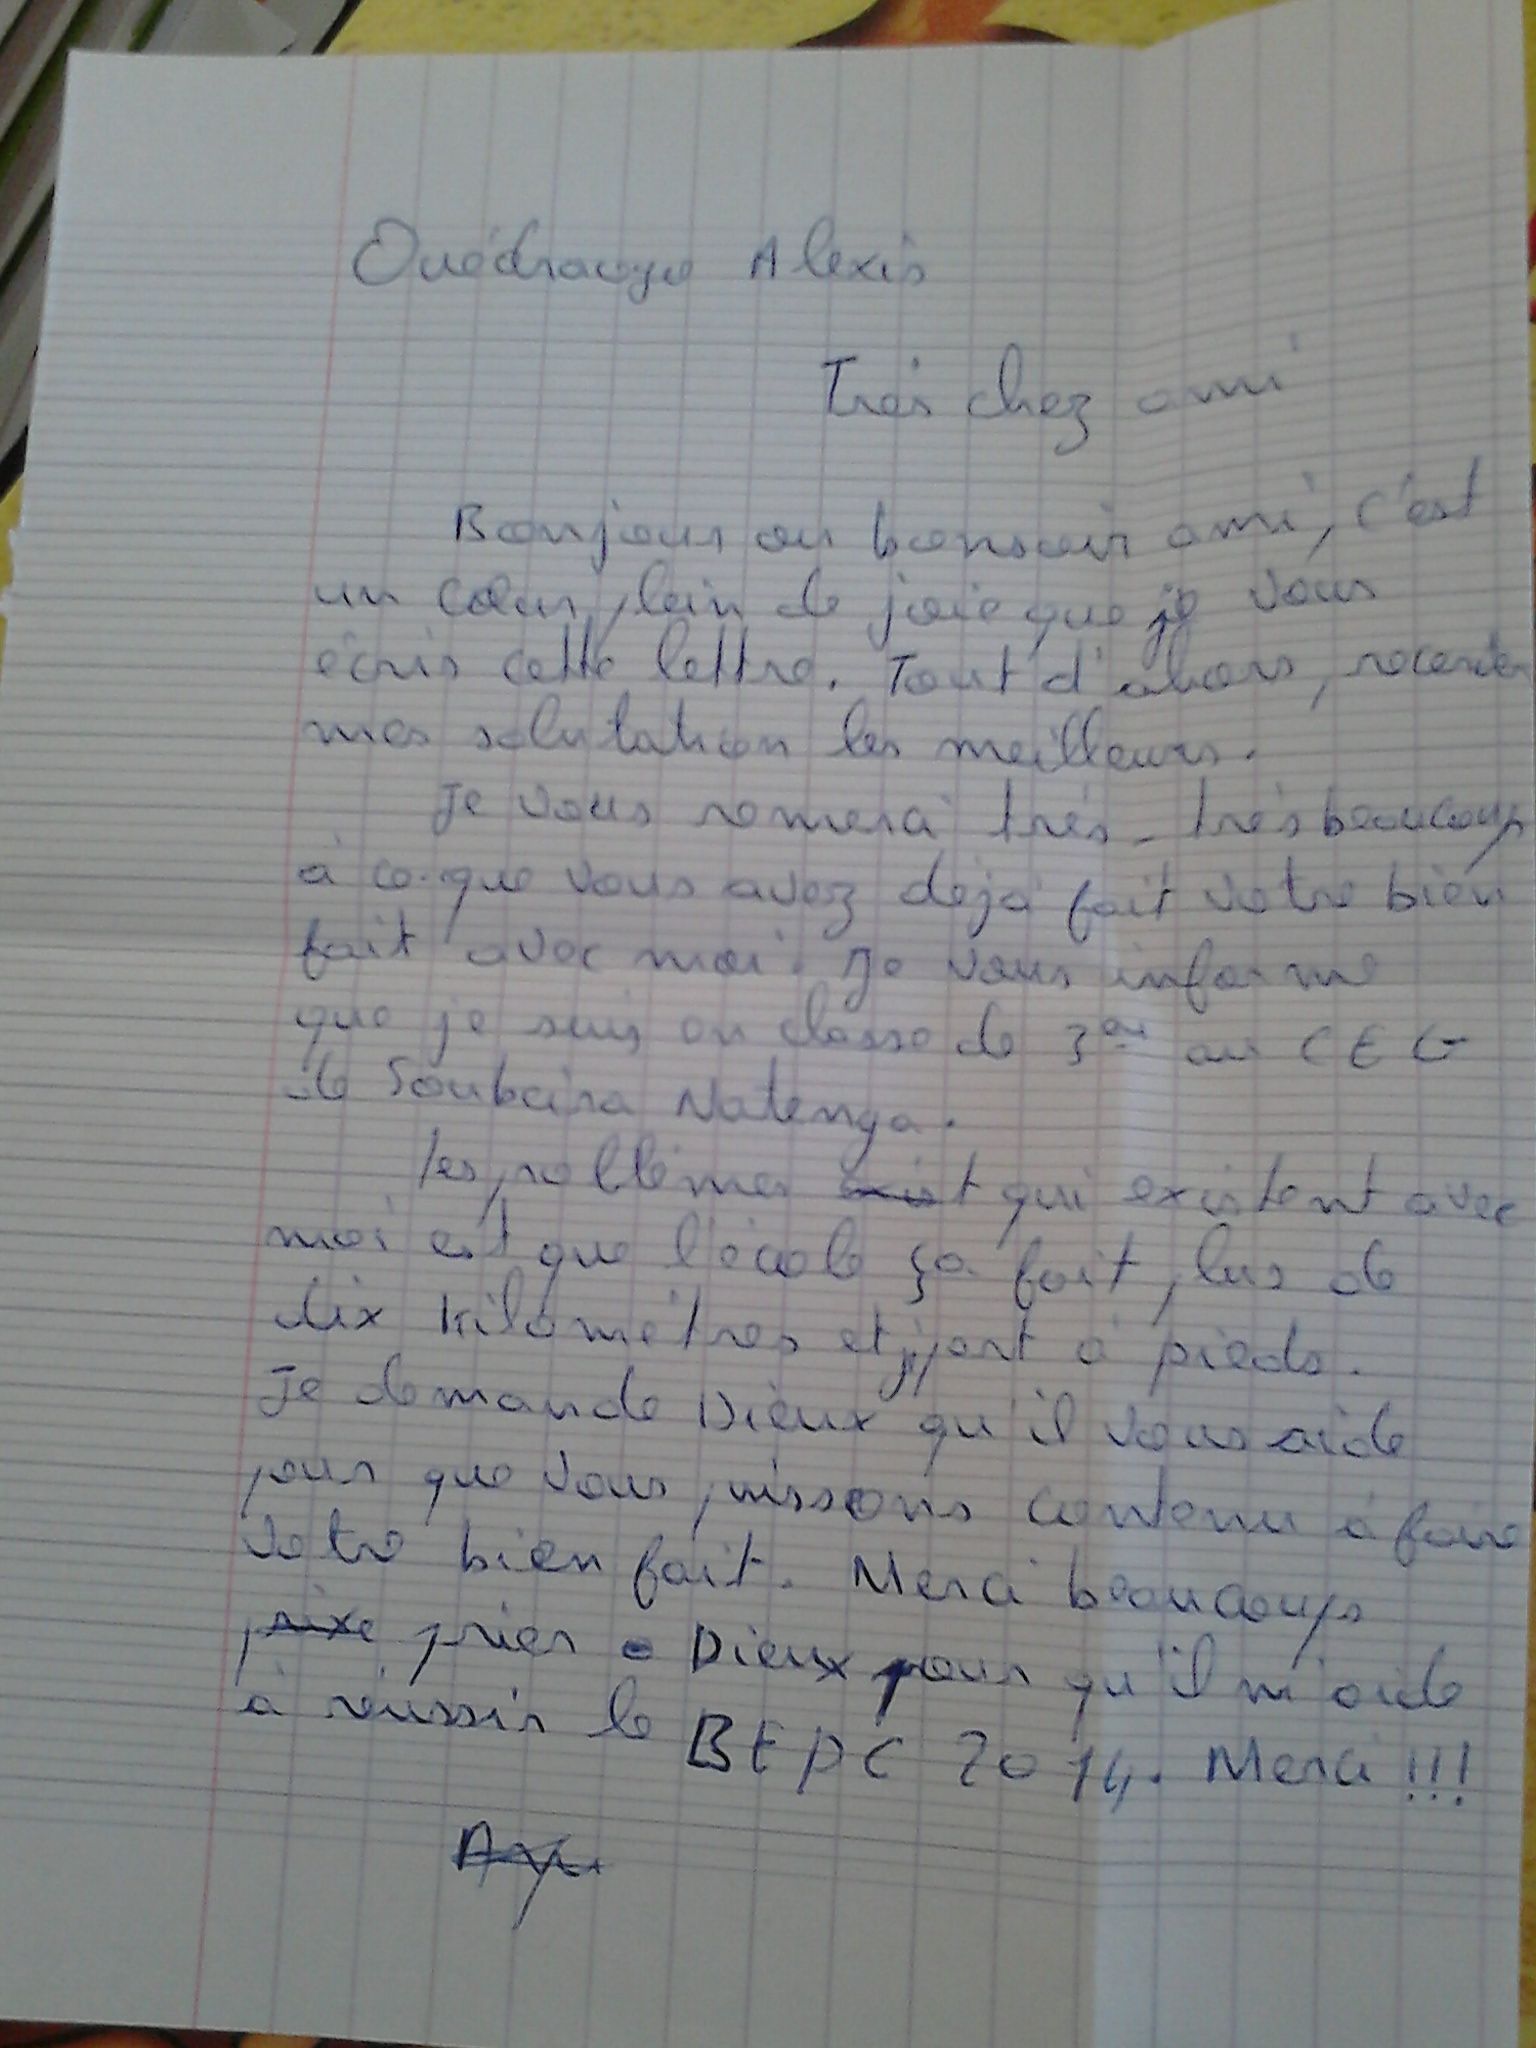 Ouédraogo Alexis
Très chez ami
Bonjour ou bonsoir ami, c'est
un cœur plein de joie que je vous
écris cette lettre. Tout d'abors, recevder
mes salutation les meilleurs.
Je vous remerci très - très beaucoup
à ce que vous avez déjà fait votre bien
fait avec moi. Je vous informe
que je suis en classe de 3ème au CEG
de Soubeira Natenga.
les problèmes exist qui existent avec
moi est que l'école ça fait plus de
dix kilomètres et j'part à pieds.
Je demande Dieux qu'il vous aide
pour que vous puissons contenu à faire
votre bien fait. Merci beaucoup
prier Dieux pour qu'il m'aide
à réussir le BEPC 2014. Merci !!!